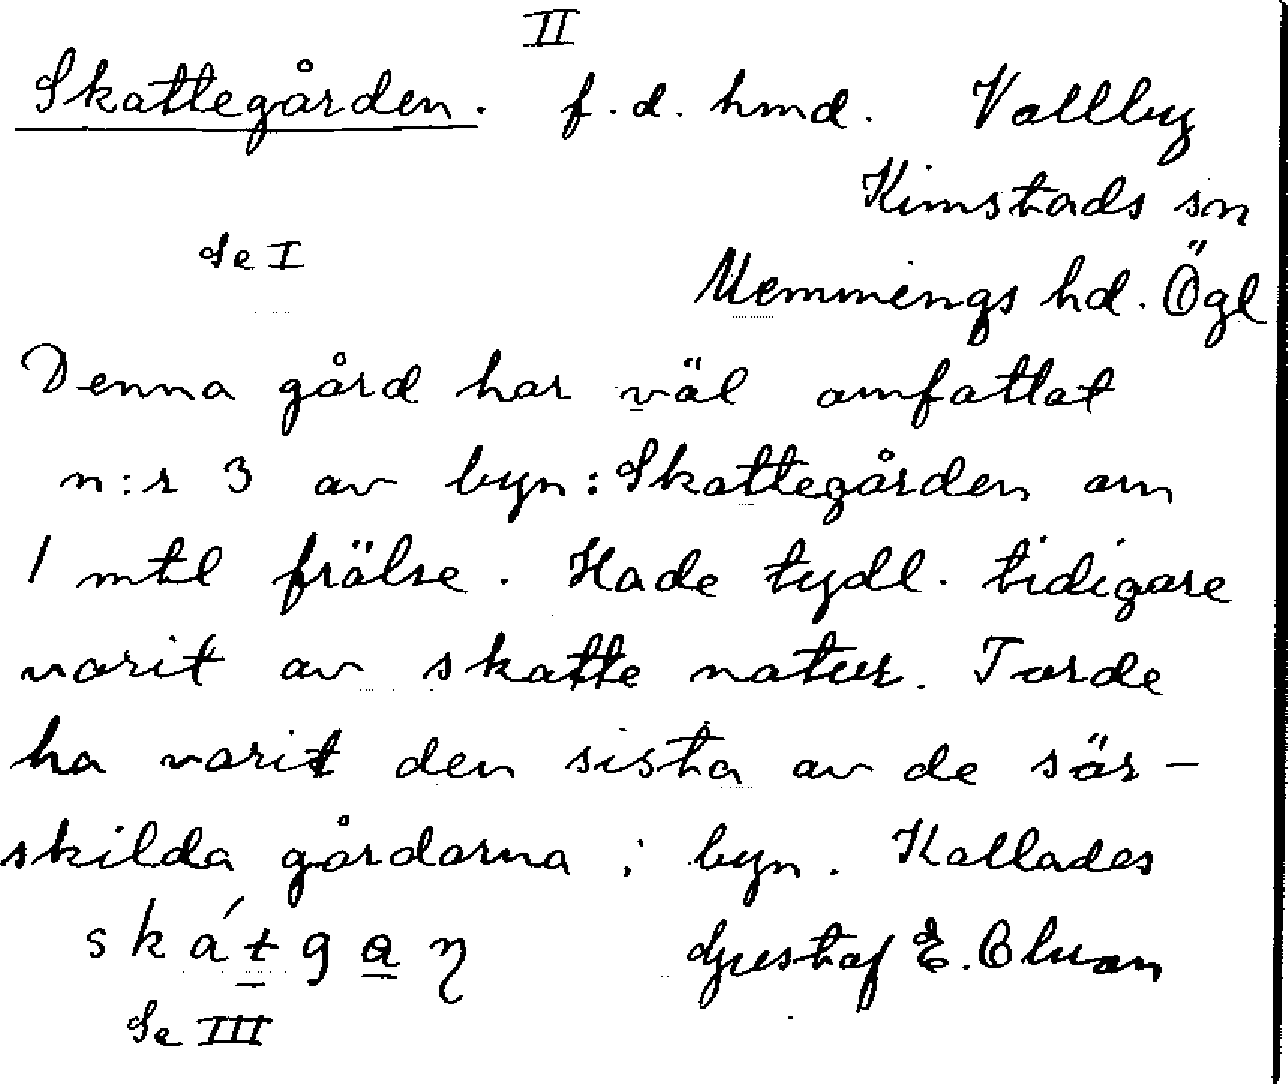 II
Skattegården. f.d. hmd. Vallby
Kimstads sn
Se I
Memmings hd. Ögl
Denna gård har väl omfattat
n:r 3 av byn: Skattegården om
1 mtl frälse. Hade tydl. tidigare
varit av skatte natur. Torde
ha varit den sista av de sär-
skilda gårdarna i byn. Kallades
skátgaŋ Gustaf E.
Se III